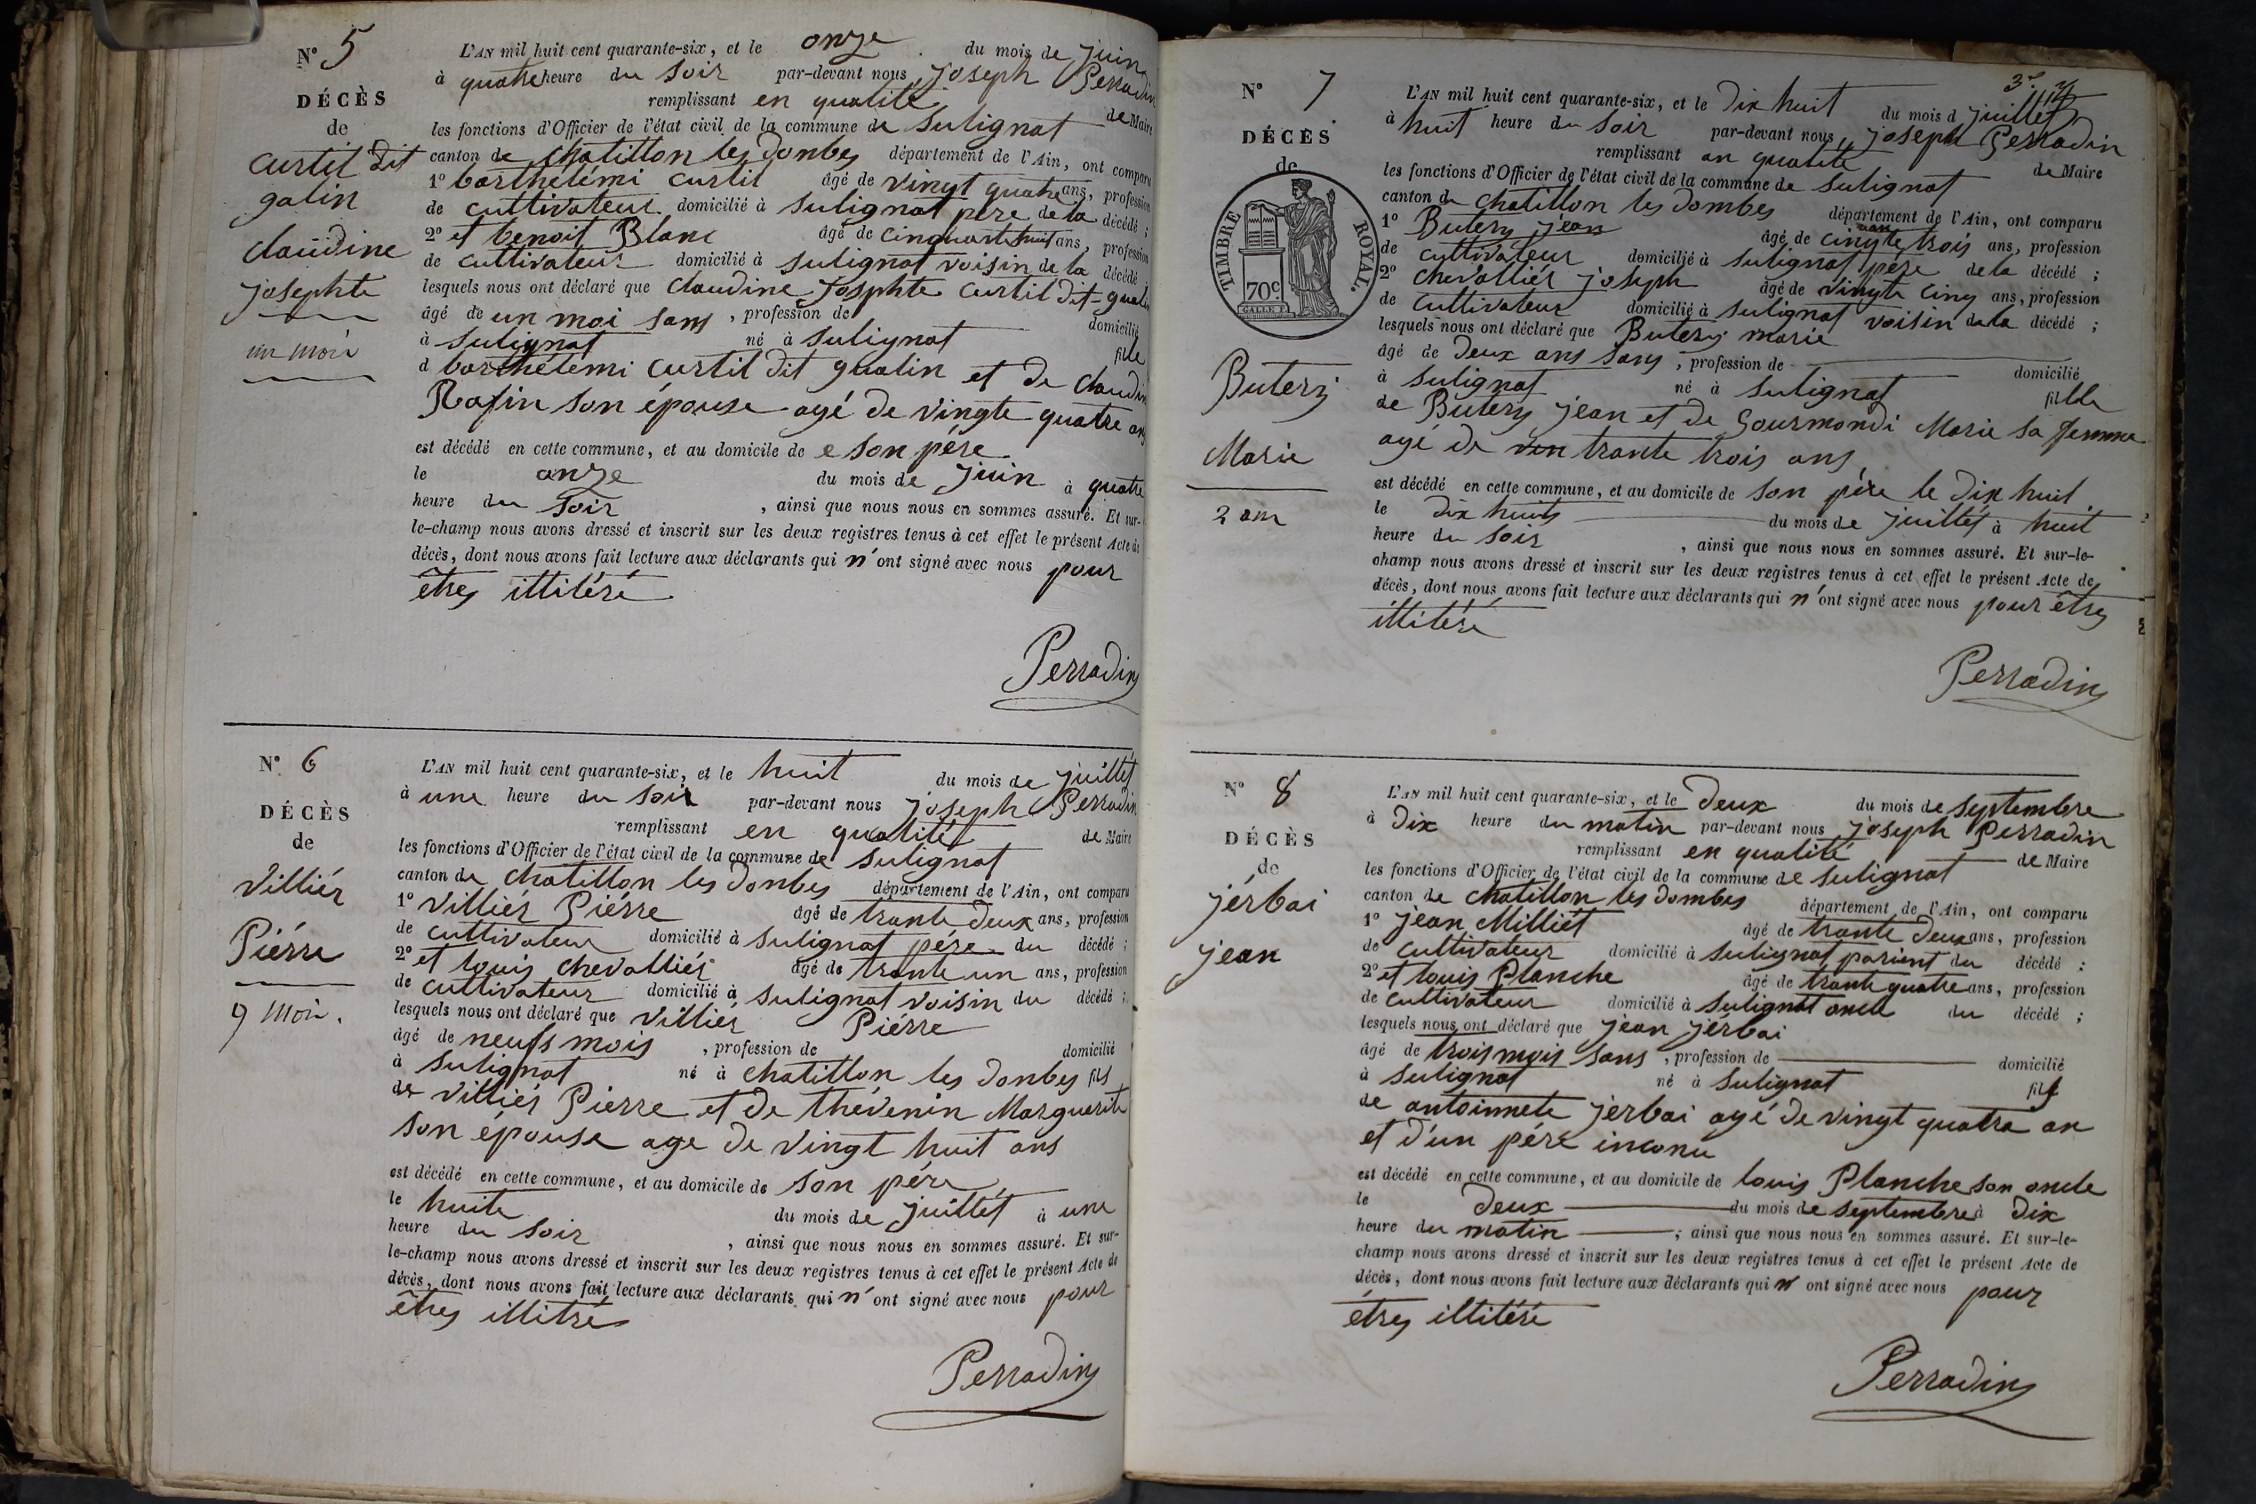 N° 5
DÉCÈS
de
curtil dit
galin
claudine
josephte
un moi
L'AN mil huit cent quarante-six, et le onze du mois de juin
à quatre heure du soir par-devant nous, joseph Perradin
remplissant en qualité de Maire
les fonctions d'Officier de l'état civil de la commune de Sulignat
canton de chatillon les donbes département de l'Ain, ont comparu
1° barthélémi curtil âgé de vingt quatre ans, profession
de cultivateur domicilié à sulignat père de la décédé ;
2° et benoit Blanc âgé de cinquante huit ans, profession
de cultivateur domicilié à sulignat voisin de la décédé ;
lesquels nous ont déclaré que claudine josphte curtil dit galin
âgé de un moi sans , profession de domicilié
à sulignat né à sulignat fille
d barthélemi curtil dit gualin et de claudin
Rafin son épouse agé de vingte quatre ans
est décédé en cette commune, et au domicile de e son pére
le onze du mois de juin à quatre
heure du soir , ainsi que nous nous en sommes assuré. Et sur-
le-champ nous avons dressé et inscrit sur les deux registres tenus à cet effet le présent Acte de
décès, dont nous avons fait lecture aux déclarants qui n'ont signé avec nous pour
êtres illitéré
Perradin
N° 6
DÉCÈS
de
Villiér
Piérre
9 moi.
L'AN mil huit cent quarante-six, et le huit du mois de juillét
à une heure du soir par-devant nous joseph Perradin
remplissant en qualité de Maire
les fonctions d'Officier de l'état civil de la commune de sulignat
canton de chatillon les donbes département de l'Ain, ont comparu
1° villiér Piérre âgé de trante deux ans, profession
de cultivateur domicilié à sulignat pére du décédé ;
2° et louis chevalliér âgé de trante un ans, profession
de cultivateur domicilié à sulignat voisin du décédé ;
lesquels nous ont déclaré que villiér Piérre
âgé de neufs mois , profession de domicilié
à sulignat né à chatillon les donbes fils
de villiér Piérre et de thévenin Marguerite
son épouse age de vingt huit ans
est décédé en cette commune, et au domicile de son pére
le huite du mois de juillét à une
heure du soir , ainsi que nous nous en sommes assuré. Et sur-
le-champ nous avons dressé et inscrit sur les deux registres tenus à cet effet le présent Acte de
décès, dont nous avons fait lecture aux déclarants qui n'ont signé avec nous pour
êtres illitré
Perradin
N° 7
DÉCÈS
de
TIMBRE ROYAL.
70c.
Butery
Marie
2 ans
L'AN mil huit cent quarante-six, et le dix huit du mois d juillét
à huit heure du soir par-devant nous, joseph Perradin
remplissant an qualité de Maire
les fonctions d'Officier de l'état civil de la commune de sulignat
canton de chatillon les dombes département de l'Ain, ont comparu
1° Butery jean âgé de cinqante trois ans, profession
de cultivateur domicilié à sulignat pére de la décédé ;
2° chevalliér joseph âgé de vingte cinq ans, profession
de cultivateur domicilié à sulignat voisin de la décédé ;
lesquels nous ont déclaré que Butery marie
âgé de deux ans sans , profession de domicilié
à sulignat né à sulignat fille
de Butery jean et de Gourmondi Marie sa femme
agé de ven trante trois ans
est décédé en cette commune, et au domicile de son pére le dix huit
le dix huits du mois de juillét à huit
heure du soir , ainsi que nous nous en sommes assuré. Et sur-le-
champ nous avons dressé et inscrit sur les deux registres tenus à cet effet le présent Acte de
décès, dont nous avons fait lecture aux déclarants qui n'ont signé avec nous pour êtres
illitéré
Perradin
N° 8
DÉCÈS
de
jérbai
jean
L'AN mil huit cent quarante-six, et le deux du mois de septembre
à dix heure du matin par-devant nous joseph Perradin
remplissant en qualité de Maire
les fonctions d'Officier de l'état civil de la commune de sulignat
canton de chatillon les dombes département de l'Ain, ont comparu
1° jean Milliét âgé de trante deux ans, profession
de cultivateur domicilié à sulignat parient du décédé ;
2° et louis Planche âgé de trante quatre ans, profession
de cultivateur domicilié à sulignat oncle du décédé ;
lesquels nous ont déclaré que jean jérbai
âgé de trois mois sans , profession de domicilié
à sulignat né à sulignat fils
de antoinnete jerbai agé de vingt quatra an
et d'un pére inconu
est décédé en cette commune, et au domicile de louis Planche son oncle
le deux du mois de septembre à dix
heure du matin ; ainsi que nous nous en sommes assuré. Et sur-le-
champ nous avons dressé et inscrit sur les deux registres tenus à cet effet le présent Acte de
décès, dont nous avons fait lecture aux déclarants qui n'ont signé avec nous pour
êtres illitéré
Perradin